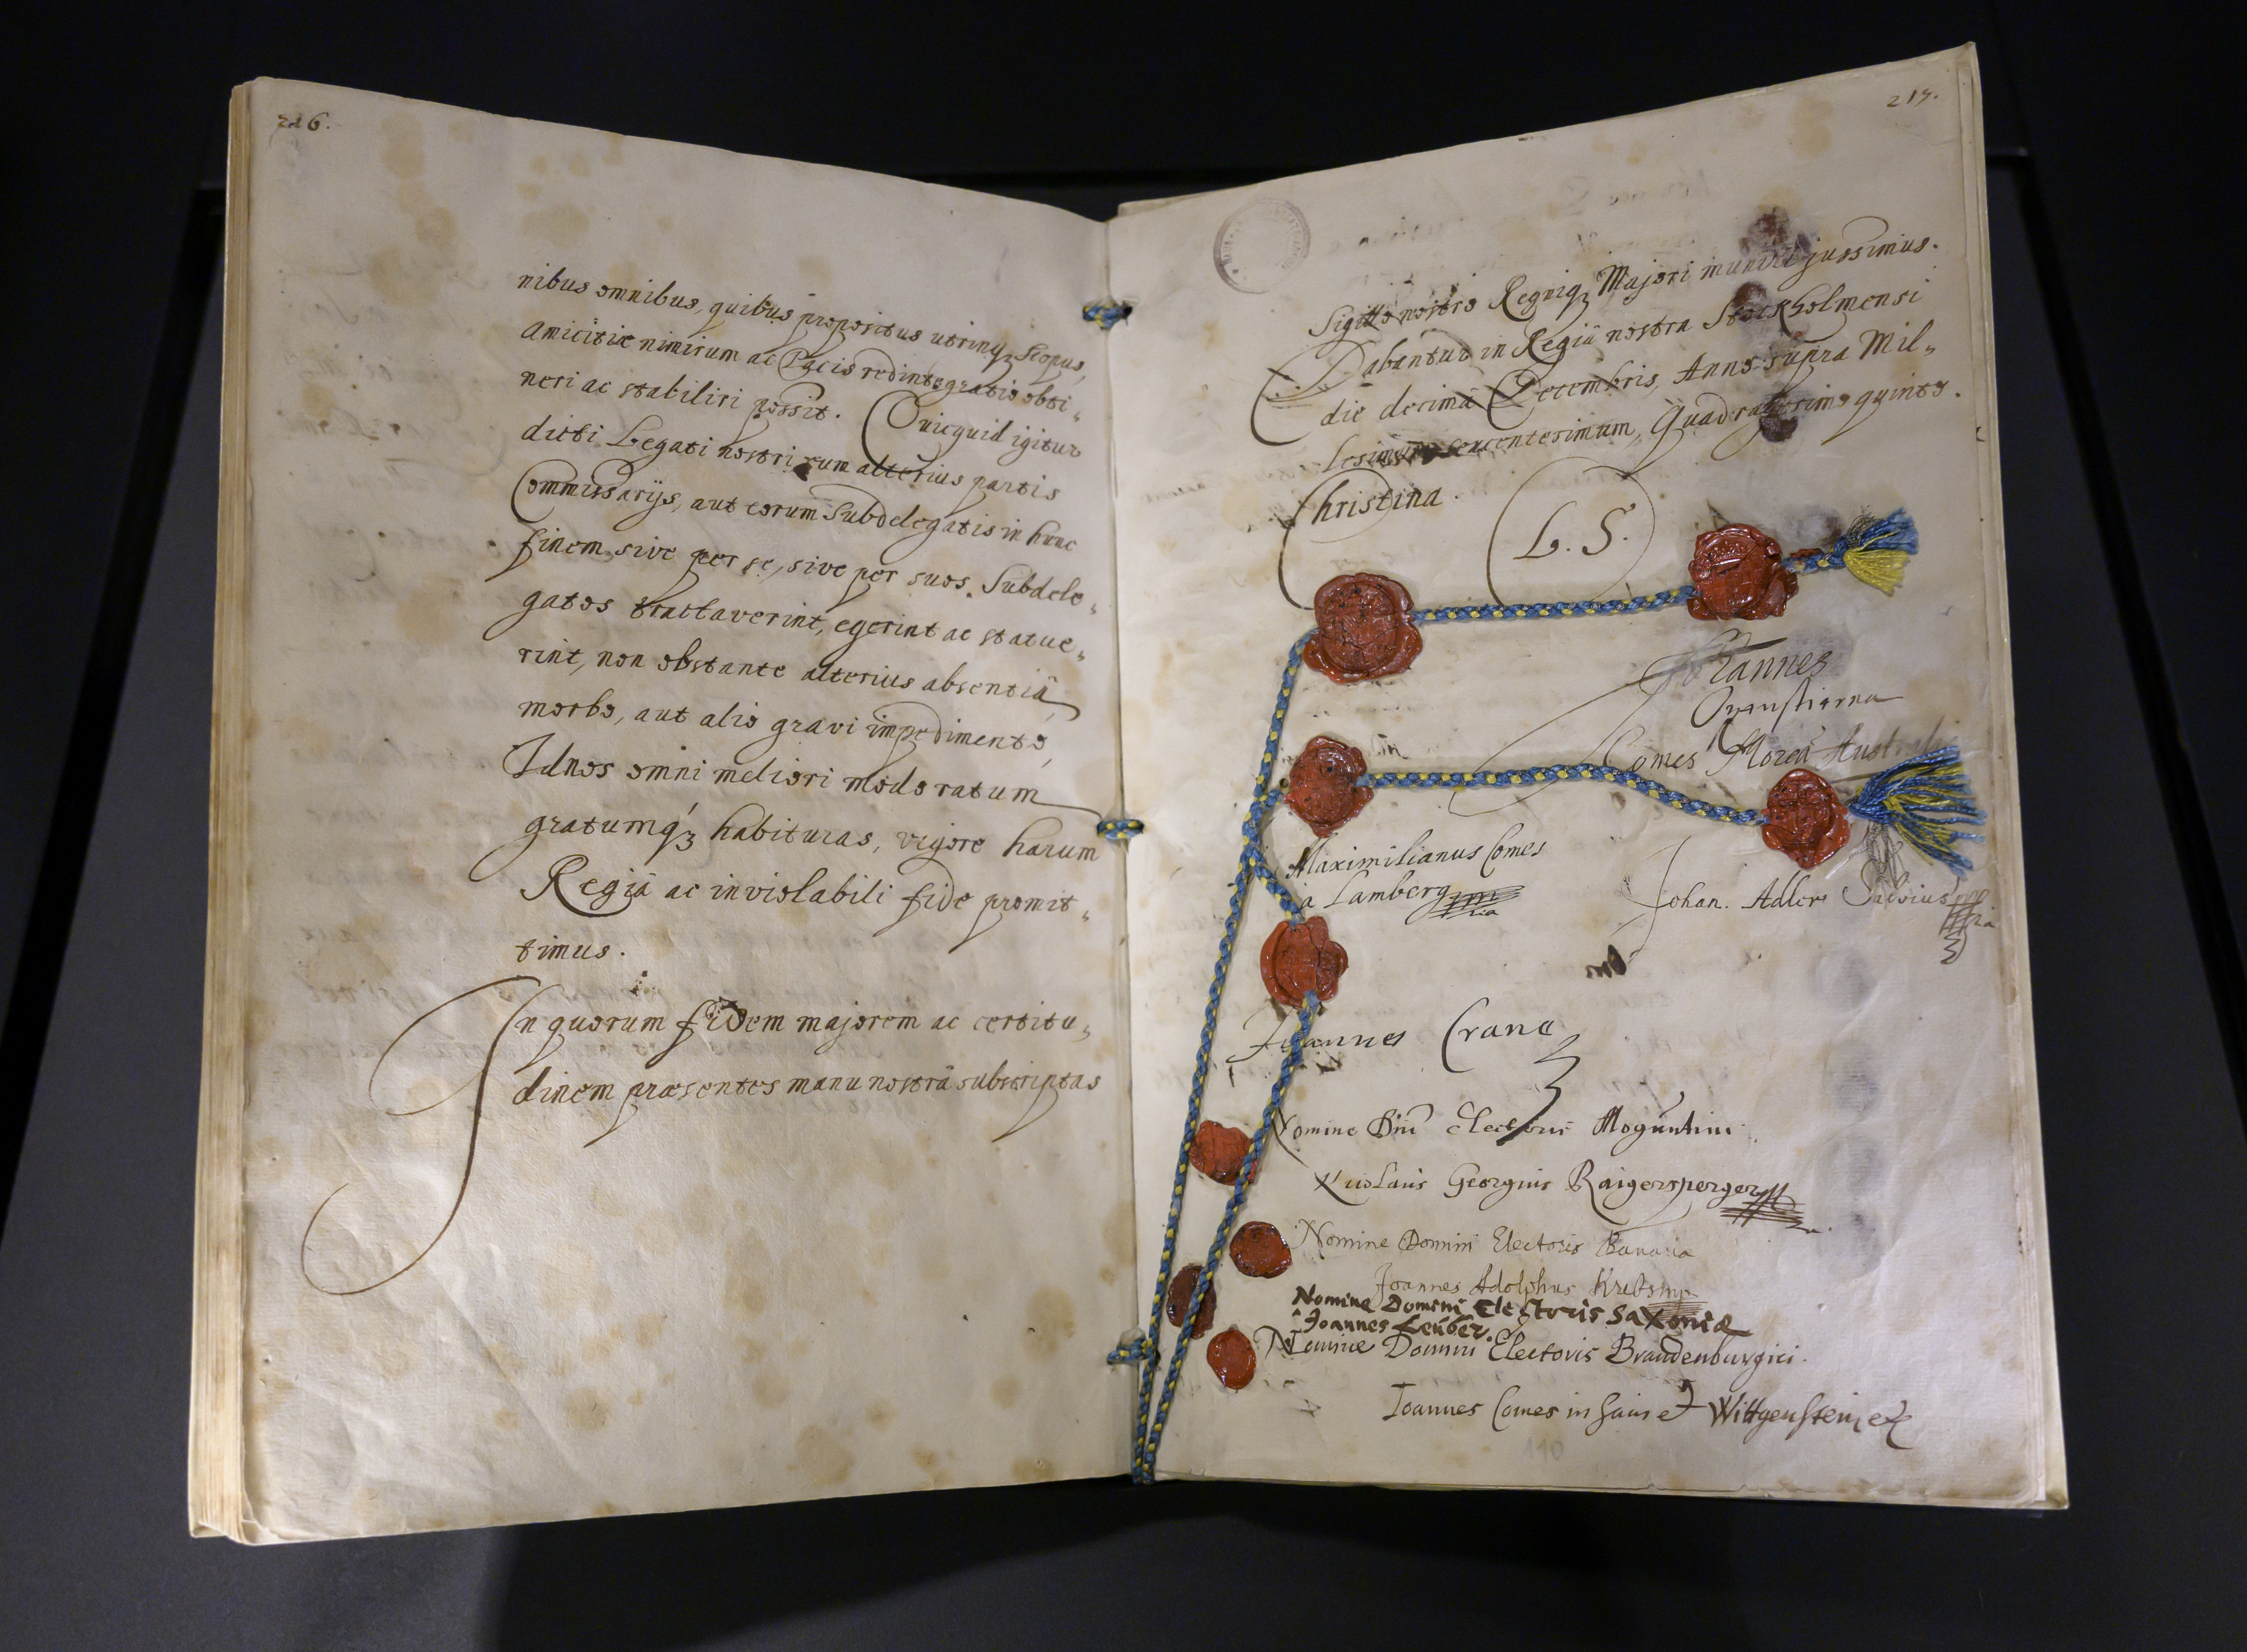 216.
nibus omnibus, quibus propositus utrinq3 scopus,
amicitiæ nimirum ac Pacis redintegratio obti„
neri ac stabiliri possit. Quicquid igitur
dicti Legati nostri cum alterius partis
Commissarijs, aut eorum Subdelegatis in hunc
finem, sive per se, sive per suos Subdele„
gatos tractaverint, egerint ac statue„
rint, non obstante alterius absentiâ,
morbo, aut alio gravi impedimento,
Id nos omni meliori modo ratum
gratumq3 habituras, vigore harum
Regiâ ac inviolabili fide promit„
timus.
In quorum fidem majorem ac certitu„
dinem præsentes manu nostrâ subscriptas
217.
Sigillo nostro Regniq3 Majori muniri jussimus.
Dabantur in Regiâ nostra Stockholmensi
die decimâ Decembris, Anno supra Mil„
lesimum sexcentesimum, Quadragesimo quinto.
Christina.
L. S.
Johannes
Oxenstierna
Comes Moreæ Austral
Maximilianus Comes
à Lamberg
Johan. Adler Salvius
Joannes Crane
Nomine Dni Electoris Moguntini
Nicolaus Georgius Raigersperger
Nomine Domini Electoris Bavariæ
Joannes Adolphus Krebs mp
Nomine Domini Electoris Saxoniæ
Joannes Leuber.
Nomine Domini Electoris Brandenburgici.
Joannes Comes in Sain et Wittgenstein
110